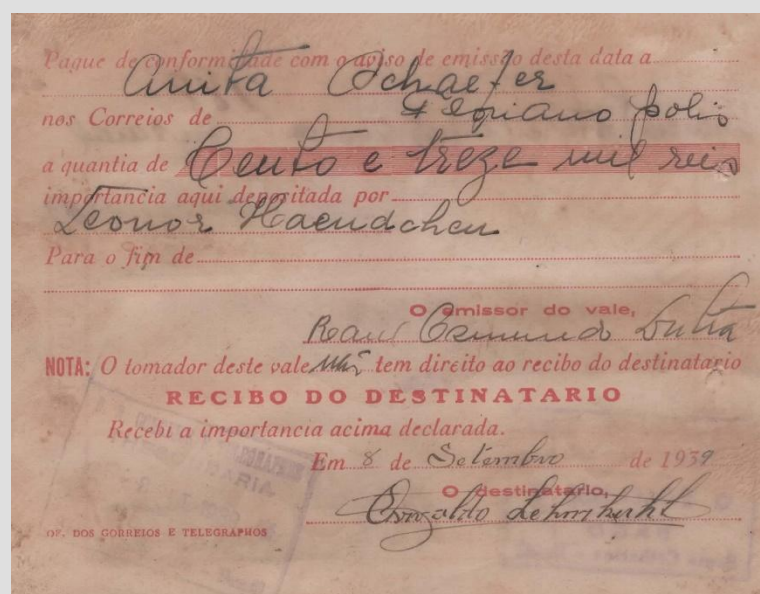 Pague de conformidade com o aviso de emissão desta data a
Anita Schaefer
nos Correios de Florianopolis
a quantia de Cento e treze mil reis
importancia aqui depositada por
Leonor Haendchen
Para o fim de
O emissor do vale,
Raul Osmundo Dutra
NOTA: O tomador deste vale não tem direito ao recibo do destinatario
RECIBO DO DESTINATARIO
Recebi a importancia acima declarada.
Em 8 de Setembro de 1939
O destinatario,
Osvaldo
OF. DOS CORREIOS E TELEGRAPHOS